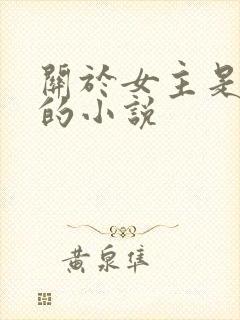 關於女主是
的小說
黄泉隼